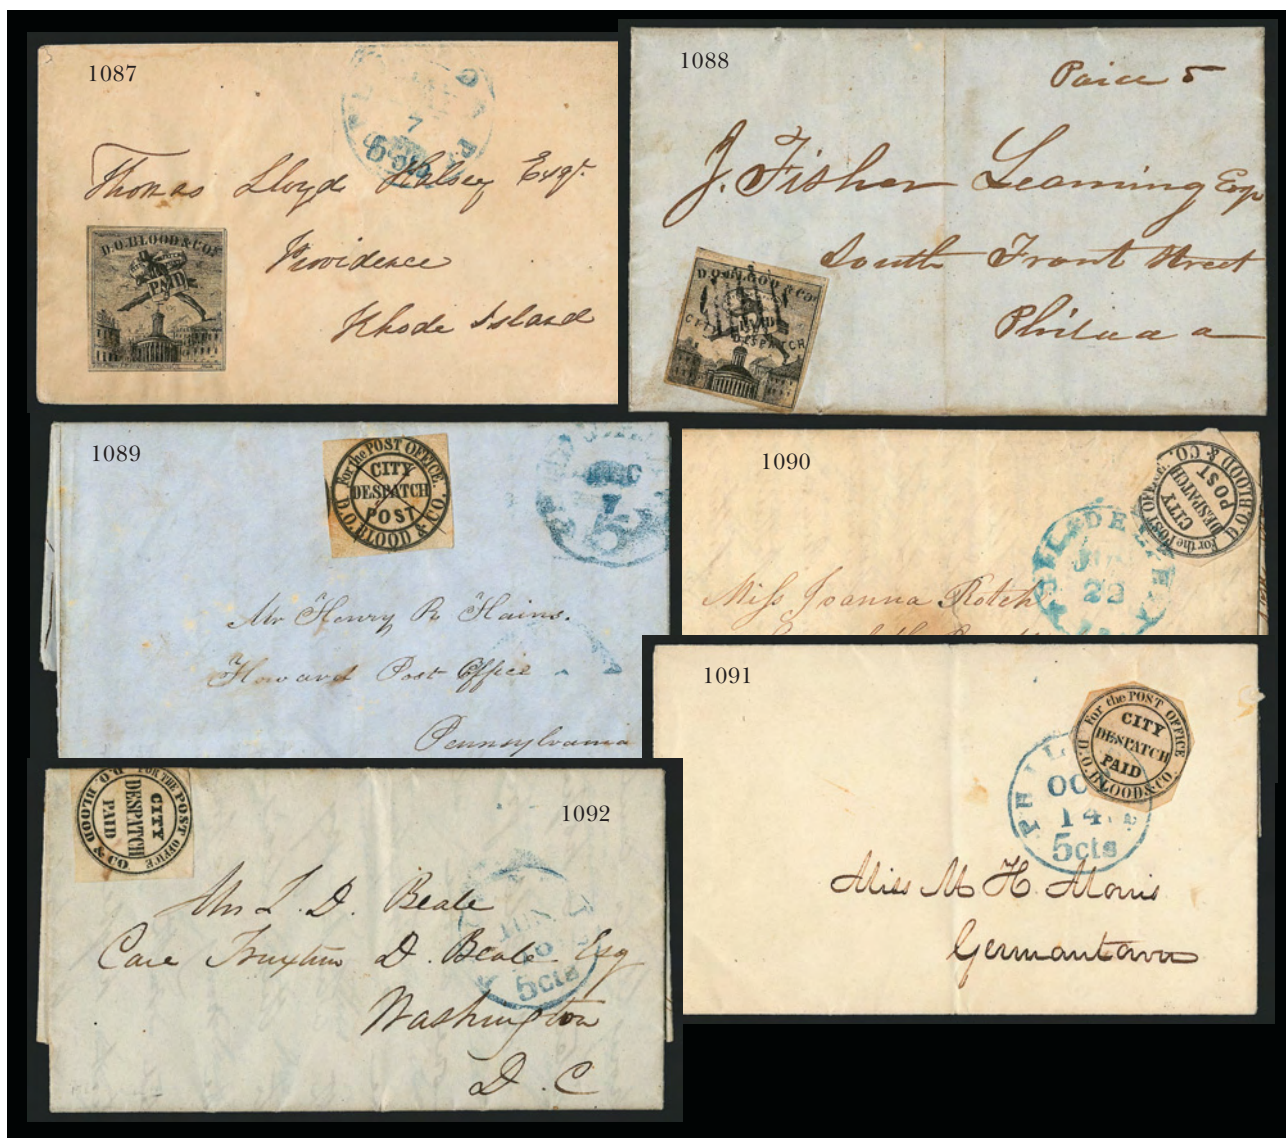 1087
5 cts
7
Thomas Lloyd Halsey Esqr.
Providence
Rhode Island
D.O. BLOOD & CO'S
PAID
1088
5
J. Fisher Leaming Esq
South Front Street
D.O. BLOOD & CO'S
CITY
PAID
DESPATCH
1089
For the POST OFFICE.
CITY
DESPATCH
POST
D.O. BLOOD & CO.
7
5
Mr Henry R Hains.
Howard Post Office
Pennsylvania
1090
For the POST OFFICE.
CITY
DESPATCH
POST
D.O. BLOOD & CO.
22
Miss Joanna Rotch
1091
For the POST OFFICE
CITY
DESPATCH
PAID
D.O. BLOOD & CO.
PHIL
OC
14
5cts
Miss M H. Morris
Germantown
1092
FOR THE POST OFFICE
CITY
DESPATCH
PAID
D.O. BLOOD & CO.
JUN
5cts
L. D. Beale
Care Truxtun D. Beale Esq
Washington
D. C